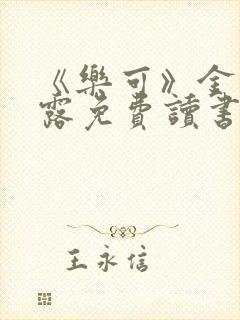 《樂可》金
露免費讀書
王永信